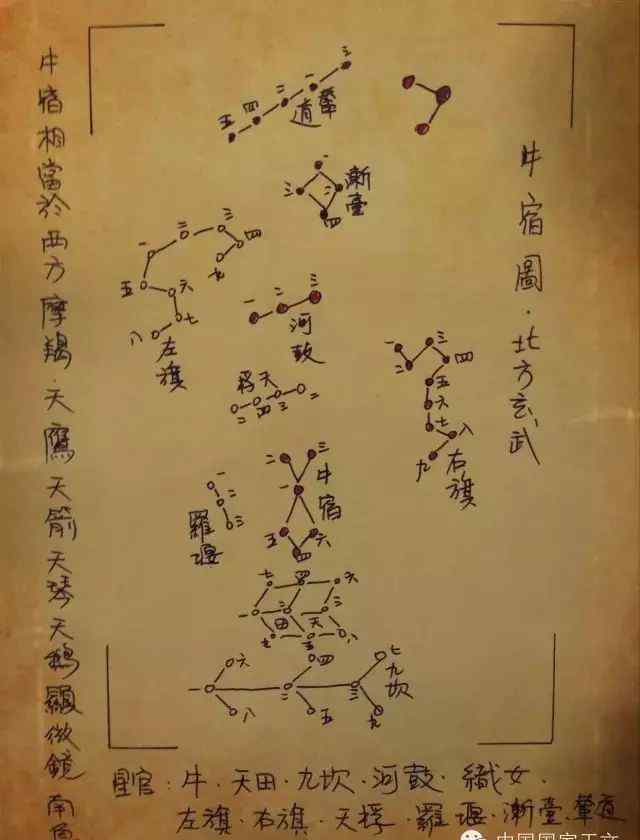 牛宿圖·北方玄武
三
一
二
四
五
輦道
一
三
二
四
漸臺
一
二
三
四
九
五
六
七
八
左旗
一
二
三
河鼓
一
二
三
四
五
六
七
八
九
右旗
桴天
二
四
三
一
二
三
一
五
六
四
牛宿
一
二
三
羅堰
七
四
六
一
二
三
田
天
九
五
八
六
四
七
一
二
三
八
五
九
九坎
牛宿相當於西方摩羯·天鷹天箭天琴天鵝顯微鏡南
星官：牛·天田·九坎·河鼓·織女·
左旗·右旗·天桴·羅堰·漸臺·輦道
中国国家天文